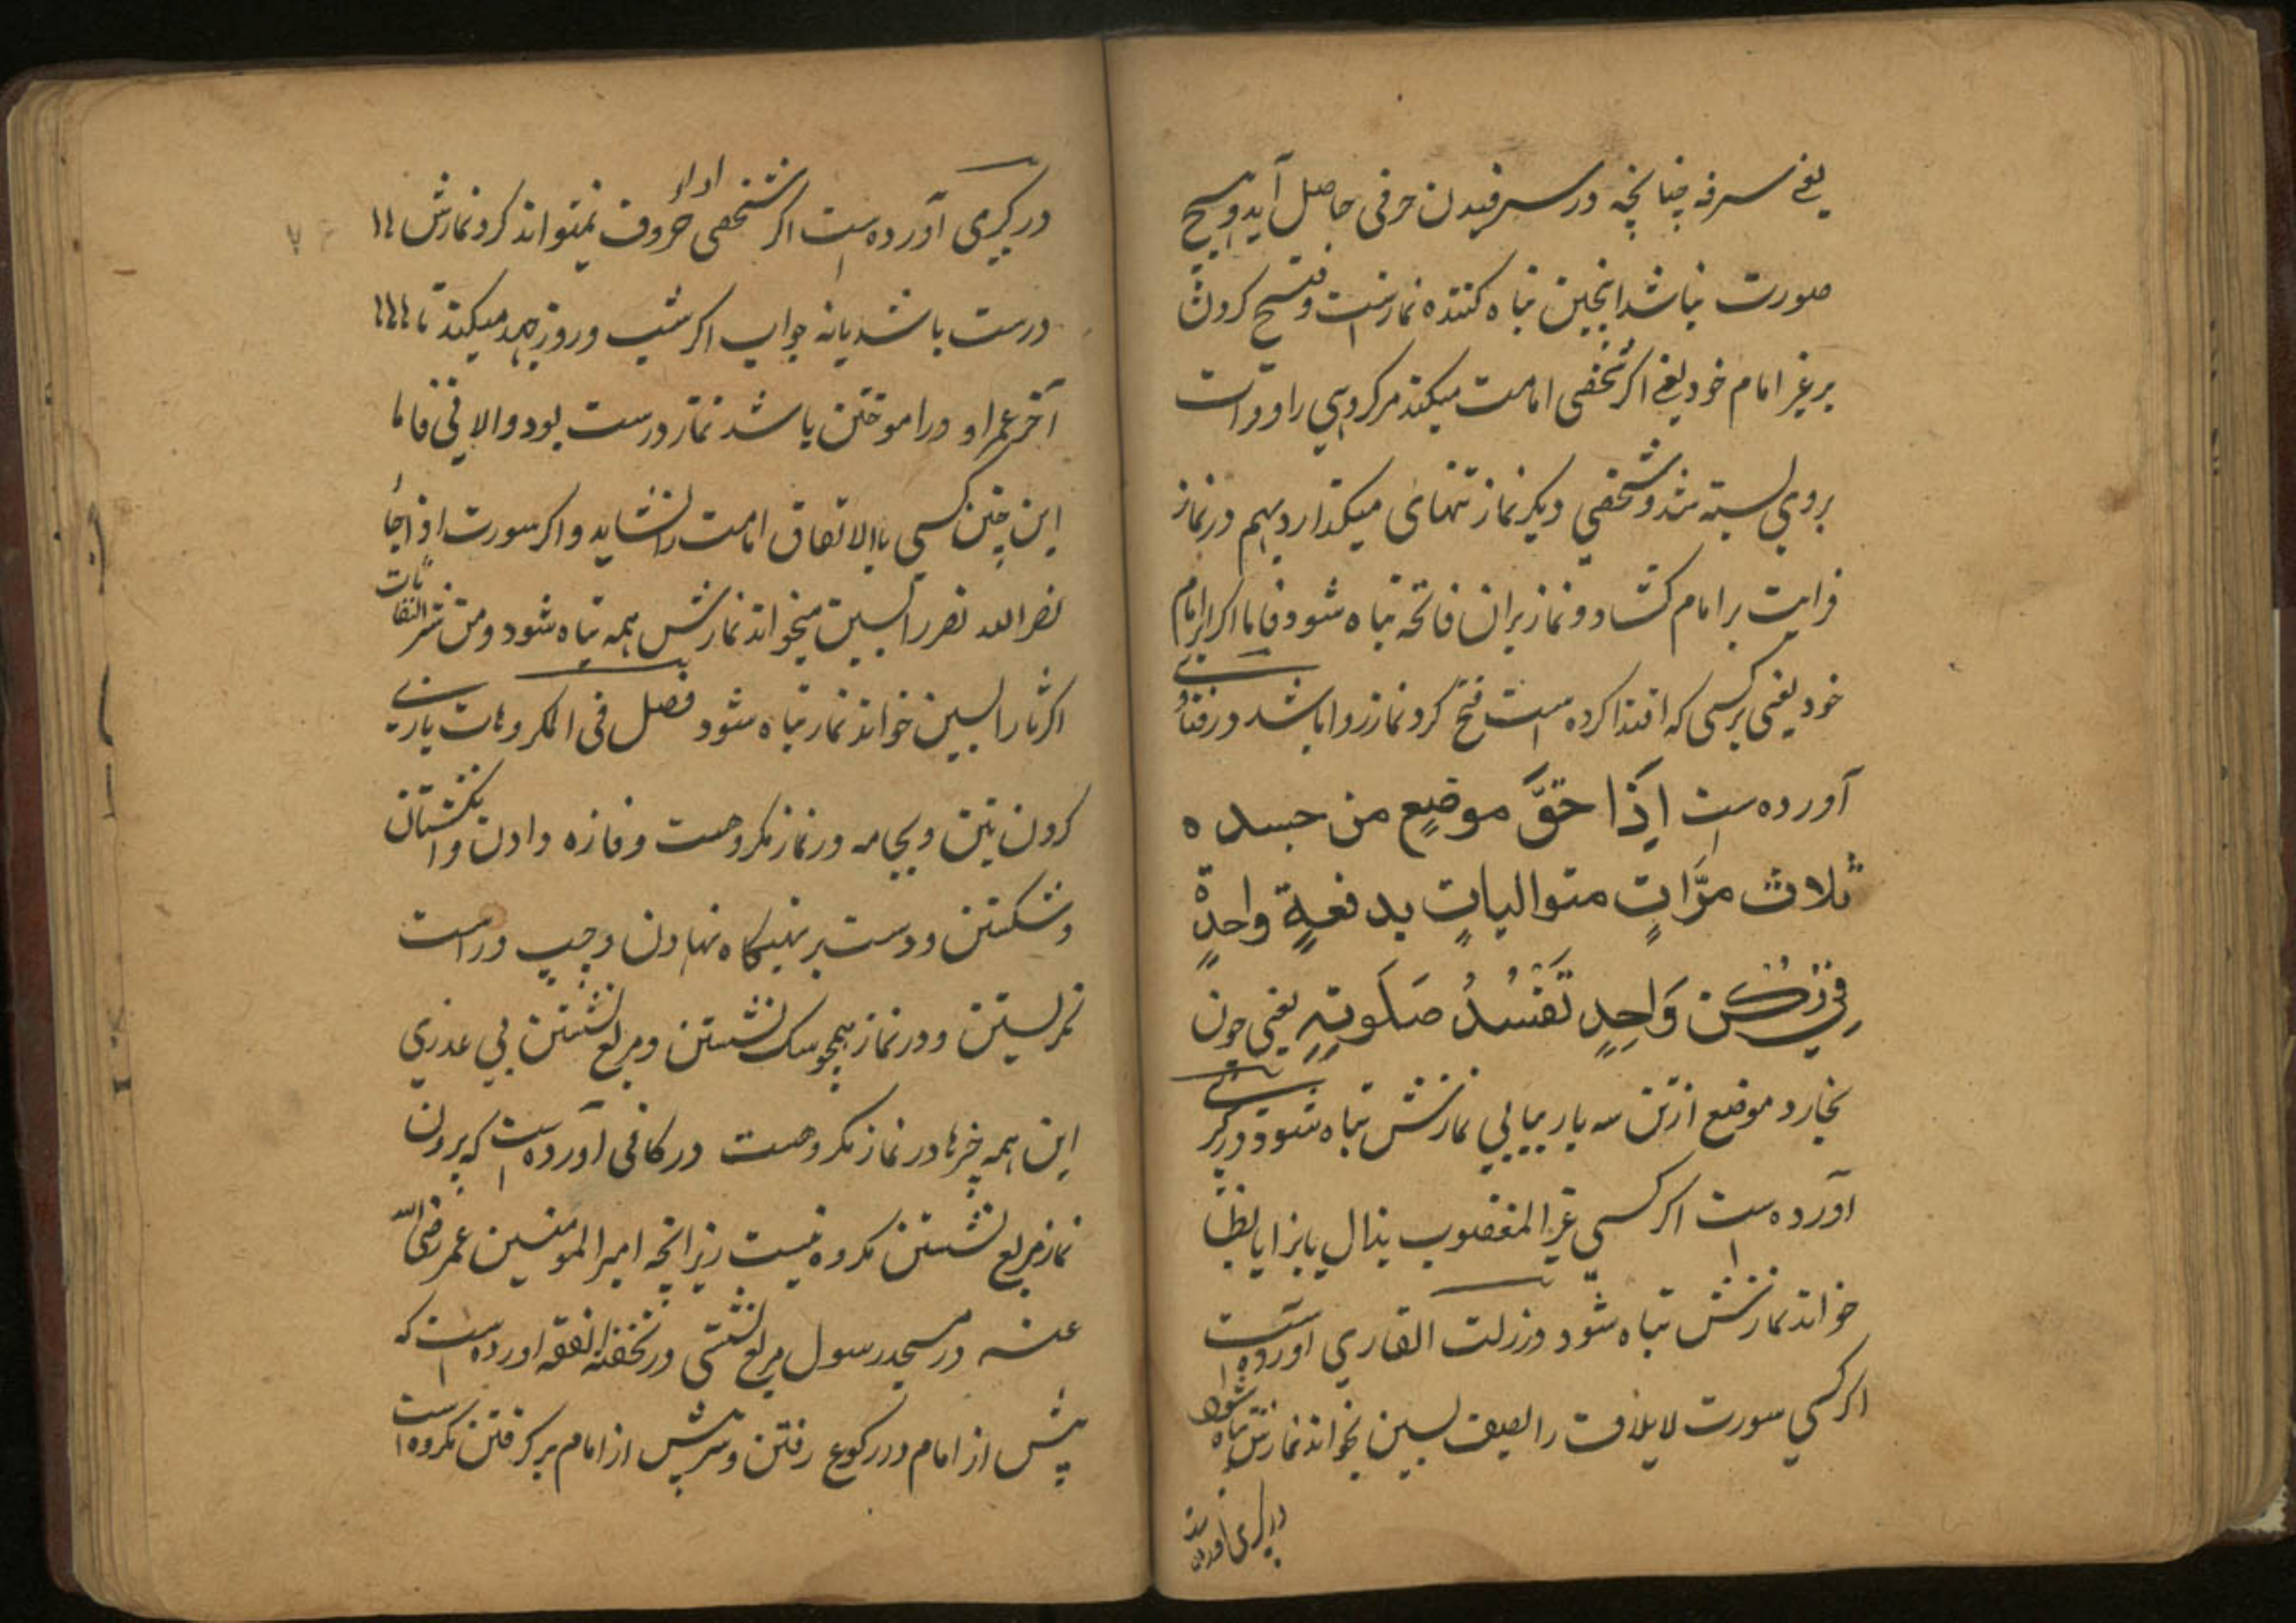 یعنی سرفه چنانچه در سرفیدن حرفی حاصل آید و هیچ
صورت نباشد اینچنین تباه کننده نمازست و فتح کردن
بر غیر امام خود یعنی اگر شخصی امامت میکند مر گروهی را و قرات
بروی بسته شد و شخصی دیگر نماز تنهای میگذارد هم در نماز
قرایت بر امام گشاد و نماز بران فاتحه تباه شود فاما اگر بر امام
خود یعنی بر کسی که اقتدا کرده است فتح کرد نماز روا باشد در
آورده است اِذَا حَکَّ موضعٍ من جسده
ثلاث مرَّاتٍ متوالیاتٍ بدفعةٍ واحدةٍ
فِی رُکنٍ وَاحِدٍ تَفسُدُ صَلٰوتِهِ یعنی چون
بخارد موضع از تن سه بار پیاپی نمازش تباه شود و در کبری
آورده است اگر کسی غیر المغضوب بذال یا بزا یا بظا
خواند نمازش تباه شود در زلت القاری آورده است
اگر کسی سورت لایلاف را بسین بخواند نمازش تباه شود
در کبری آورده است
در کبری آورده است اگر شخصی اداء حروف نمیتواند کرد نمازش
درست باشد یا نه جواب اگر شب و روز جهد میکند تا
آخر عمر او در اموختن باشد نماز درست بود و الا فی فاما
این چنین کسی باالاتفاق امامت را نشاید و اگر سورت اذا جاء
نصر الله نصر را بسین میخواند نمازش همه تباه شود و من شر النفاثات
اگر ثا را بسین خواند نماز تباه شود فصل فی المکروهات بازی
کردن بتن و بجامه در نماز مکروهست و فازه دادن و انگشتان
و شکستن و دست بر تهیگاه نهادن و چپ و راست
نگریستن و در نماز همچو سک نشستن و مربع نشستن بی عذری
این همه چیزها در نماز مکروهست در کافی آورده است که بیرون
نماز مربع نشستن مکروه نیست زیرانچه امیر المومنین عمر رضی الله
عنه در مسجد رسول مربع نشستی در تحفة الفقه اورده است که
پیش از امام در رکوع رفتن و سر پیش از امام بر گرفتن مکروه است